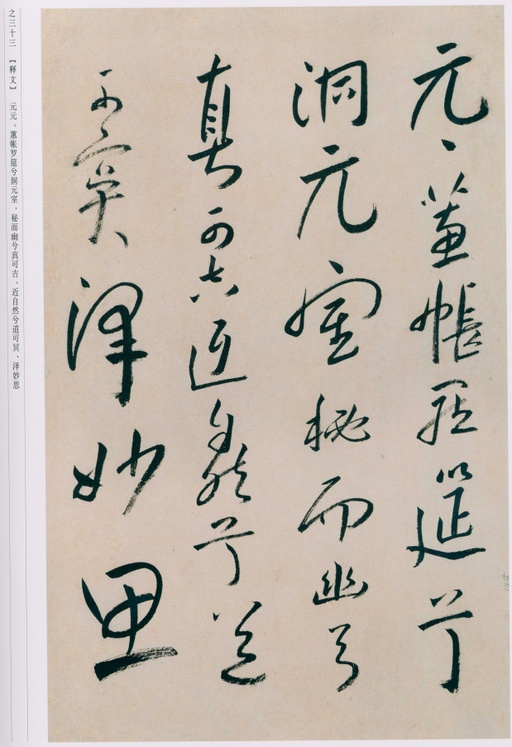 元〻蕙帳羅筵兮
洞元室秘而幽兮
真可吉近自然兮道
可冥澤妙思
之三十三 【释文】 元元。蕙帐罗筵兮洞元室,秘而幽兮真可吉。近自然兮道可冥,泽妙思